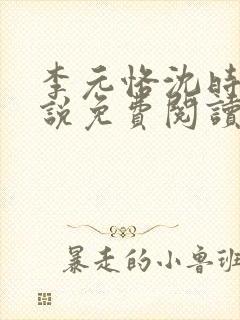 李元恪沈時
說免費閱讀
暴走的小魯班